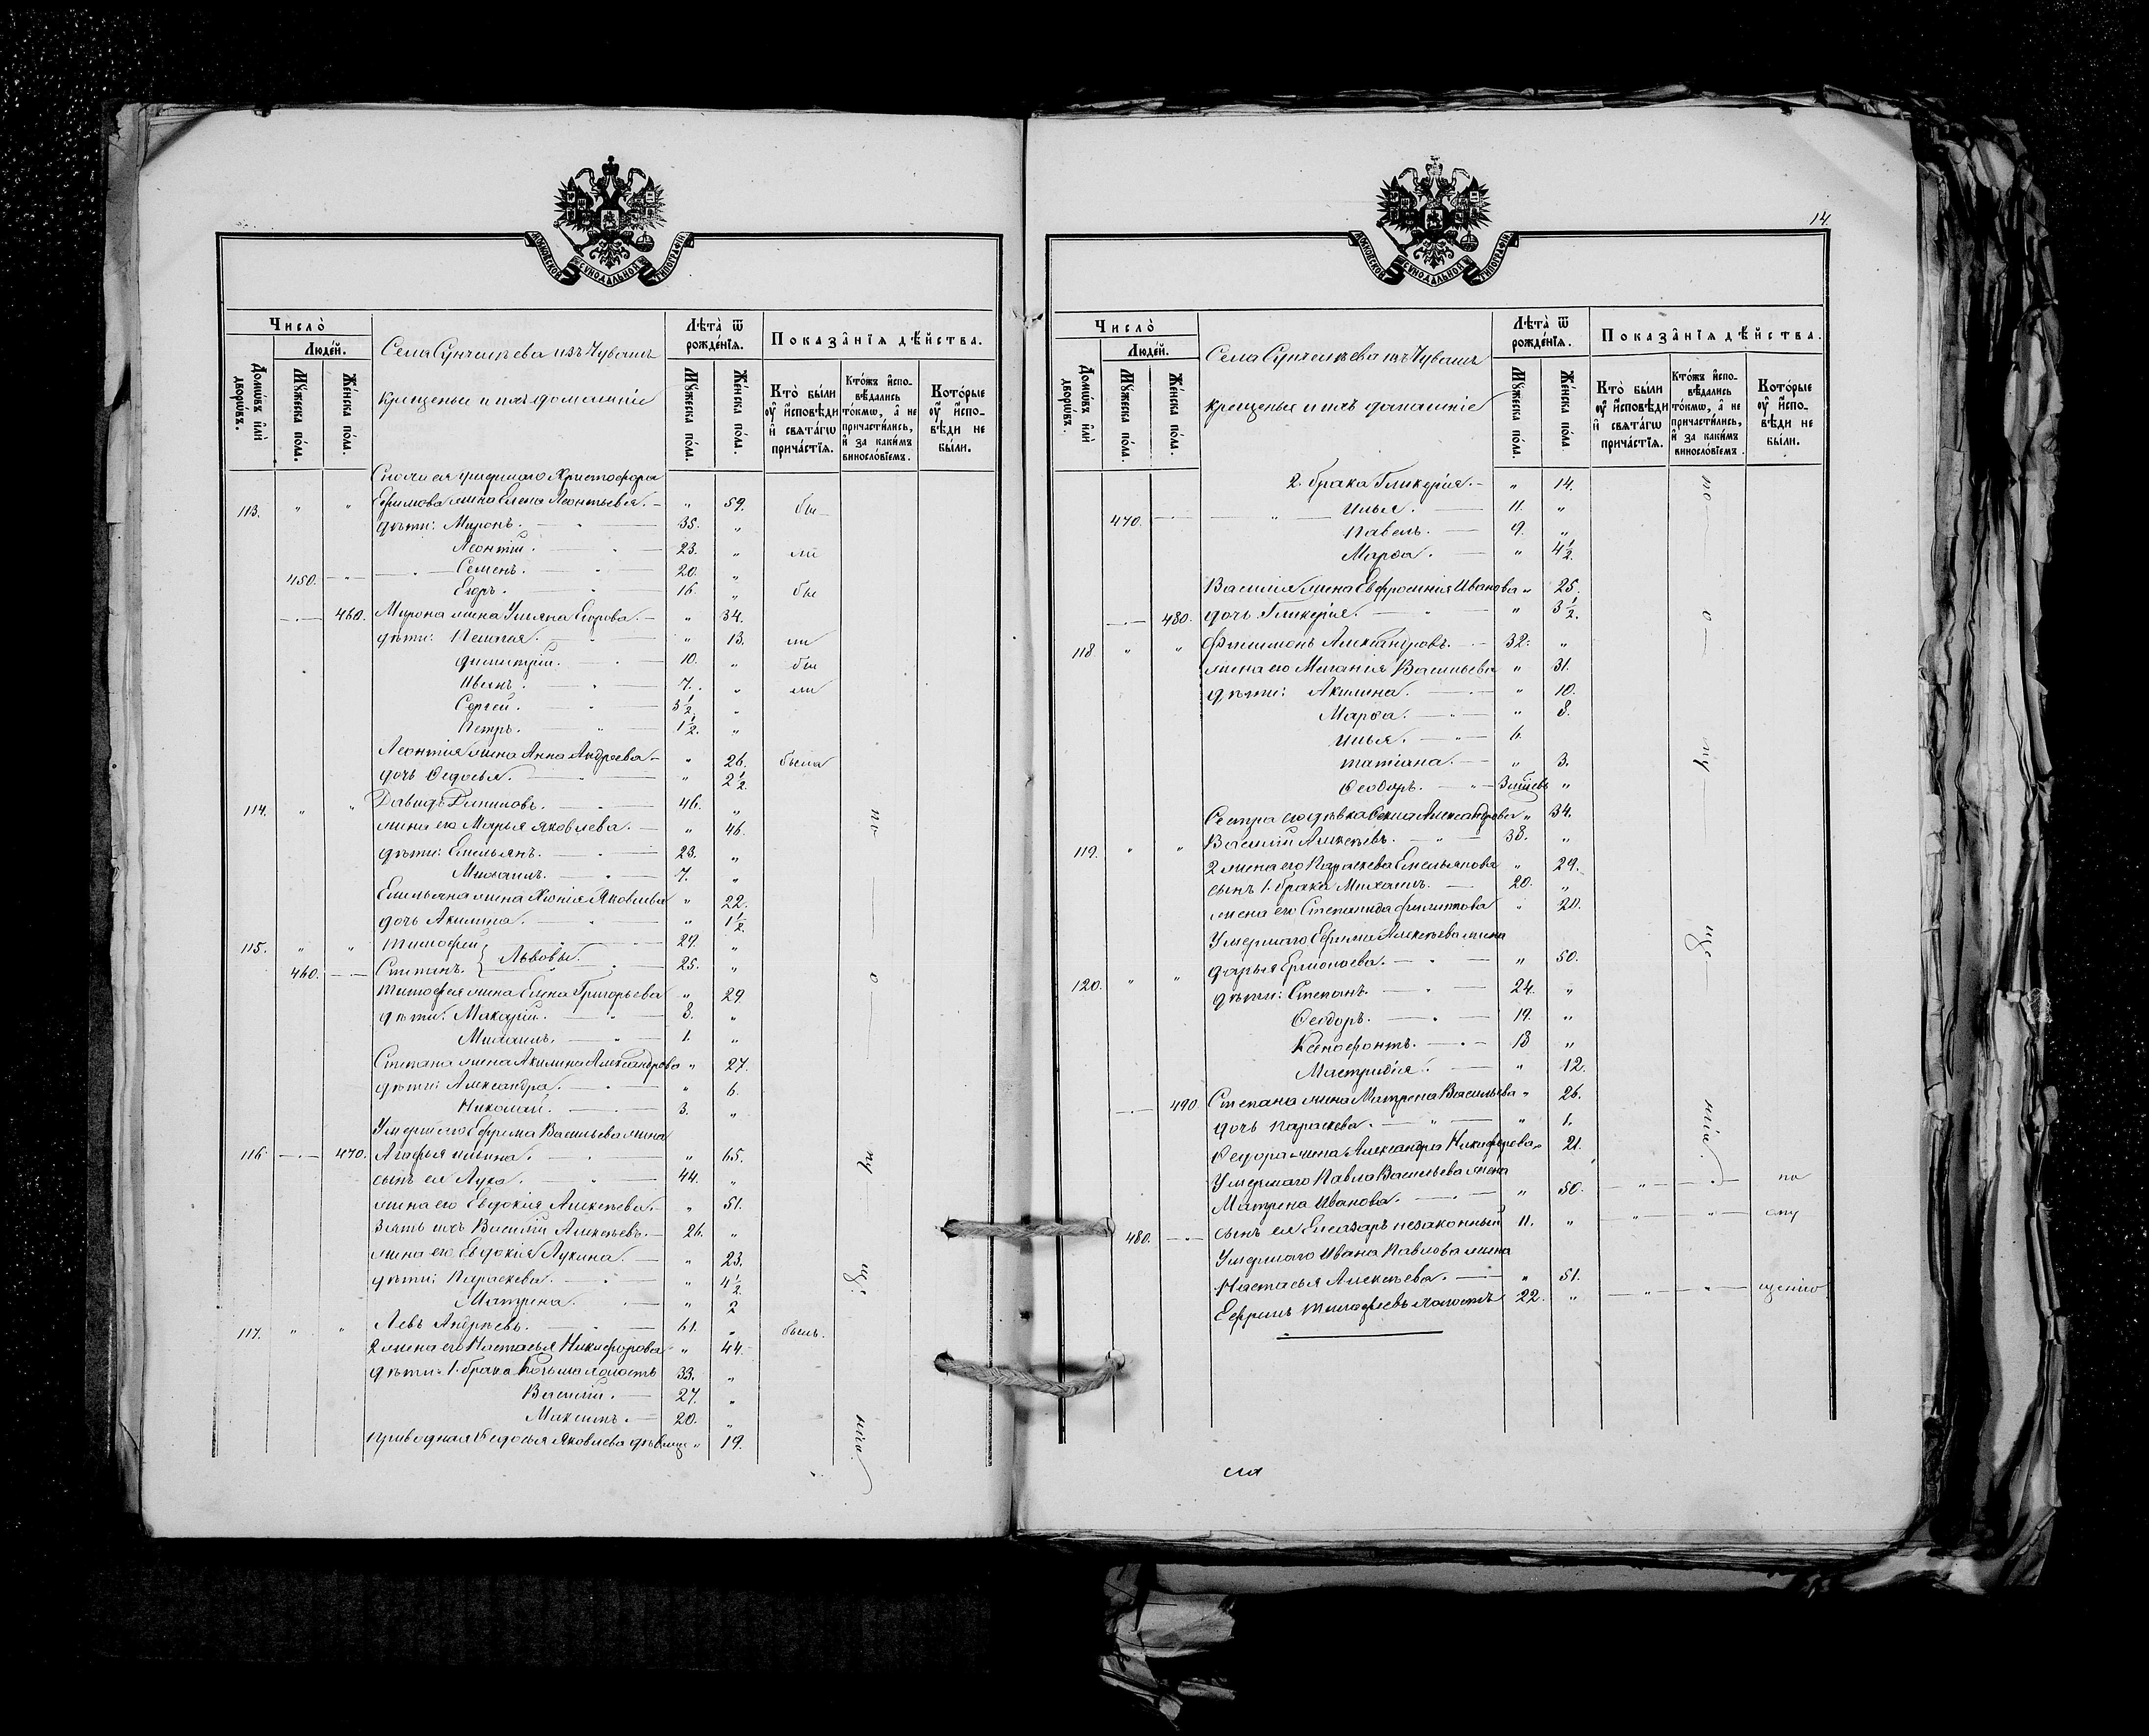 МОСКОВСКОЙ СѴНОДАЛЬНОЙ ТИПОГРАФІИ
Число̀
Людéй.
Домѡ́въ и҆лѝ дворѡ́въ.
Мꙋ́жеска по́ла.
Же́нска по́ла.
Села Сунчелѣева изъ Чувашъ
крещеные и ихъ домашніе
Лѣта̀ ѿ рожде́нїѧ.
Мꙋ́жеска по́ла.
Же́нска по́ла.
Показа̑нїѧ дѣ́йства.
Кто̀ бы́ли ᲂу҆ и҆сповѣ́ди и҆ свѧта́гѡ прича́стїѧ.
Кто́жъ и҆сповѣ́дались то́кмѡ, а҆ не причасти́лись, и҆ за каки́мъ винослóвїемъ.
Кото́рые ᲂу҆ и҆сповѣ́ди не бы́ли.
умершаго Христофора
113. " " Ефимова жена Елена Леонтьева. " 59. бы
дѣти: Миронъ. 35. "
Леонтій. 23. " ли
450. Семенъ. 20. "
Егоръ. 16. " бы
460. Мирона жена Ульяна Егорова. " 34.
дѣти: Пелагія. " 13. ли
Димитрій. 10. " бы
Иванъ. 7. " ли
Сергей. 3½ "
Петръ. 1½. "
Леонтія жена Анна Андреева " 26. была
дочь Ѳедосья. " 2½.
114. " " Давидъ Филиповъ. 46. "
жена его Марья Яковлева. " 46.
дѣти: Емельянъ. 23. "
Михаилъ. 7. "
Емельяна жена Хіонія Яковлева " 22.
дочь Акилина. " 1½.
115. " " Тимофей 29. "
460. Степанъ. } Львовы. 25. "
Тимофея жена Елена Григорьева " 29
дѣти: Макарій. 3. "
Михаилъ. 1. "
Степана жена Акилина Александрова " 27.
дѣти: Александра. " 6.
Николай. 3. "
Умершаго Ефрема Васильева жена
116. 470. Агафья Ильина. " 65.
сынъ ея Лука. 44. "
жена его Евдокія Алексѣева. " 51.
Зять ихъ Василій Алексѣевъ. 26. "
жена его Евдокія Лукина. " 23.
дѣти: Параскева. " 4½
Матрена. " 2
117. " " Левъ Андреевъ. 61. " былъ.
2 жена его Настасья Никифорова " 44.
дѣти 1. брака Козьма холостъ 33. "
Василій. 27. "
Максимъ. 20. "
приводная Ѳедосья Яковлева дѣвица " 19.
по
о
пу
ще
нію
14.
МОСКОВСКОЙ СѴНОДАЛЬНОЙ ТИПОГРАФІИ
Число̀
Людéй.
Домѡ́въ и҆лѝ дворѡ́въ.
Мꙋ́жеска по́ла.
Же́нска по́ла.
Села Сунчелѣева изъ Чувашъ
крещеные и ихъ домашніе
Лѣта̀ ѿ рожде́нїѧ.
Мꙋ́жеска по́ла.
Же́нска по́ла
Показа̑нїѧ дѣ́йства.
Кто̀ бы́ли ᲂу҆ и҆сповѣ́ди и҆ свѧта́гѡ прича́стїѧ.
Кто́жъ и҆сповѣ́дались то́кмѡ, а҆ не причасти́лись, и҆ за каки́мъ винослóвїемъ.
Кото́рые ᲂу҆ и҆сповѣ́ди не бы́ли.
2. брака Гликерія. " 14.
470. Илья. 11. "
Павелъ. 9. "
Марѳа. " 4½.
Василія жена Евфросинія Иванова " 25.
480. дочь Гликерія. " 3½.
118 " " Филимонъ Александровъ. 32. "
жена его Меланія Васильева " 31.
дѣти: Акилина. " 10.
Марѳа. " 8.
Илья. 6.
Татіана. " 3.
Ѳеодоръ. "
Сестра его дѣвка Александрова " 34.
119. " " Василій Алексѣевъ. 38. "
2 жена его Параскева Емельянова " 29.
сынъ 1. брака Михаилъ. 20. "
жена его Степанида Филиппова " 20.
Умершаго Ефрема Алексѣева жена
120. " " Дарья Ермолаева. " 50.
дѣти: Степанъ. 24. "
Ѳеодоръ. 19. "
Ксенофонтъ. 13 "
Мастридія. " 12.
490. Степана жена Матрена Васильева " 26.
дочь Параскева. " 1.
Ѳедора жена Александра Никифорова " 21.
Умершаго Павла Васильева жена
Матрена Иванова. " 50. " " по
480. сынъ ея Елеазаръ незаконный 11. " " " опу
Умершаго Ивана Павлова жена
Настасья Алексѣева. " 51.
Ефремъ Тимофеевъ холостъ 22. " " " щенію
по
о
пу
ще
нію.